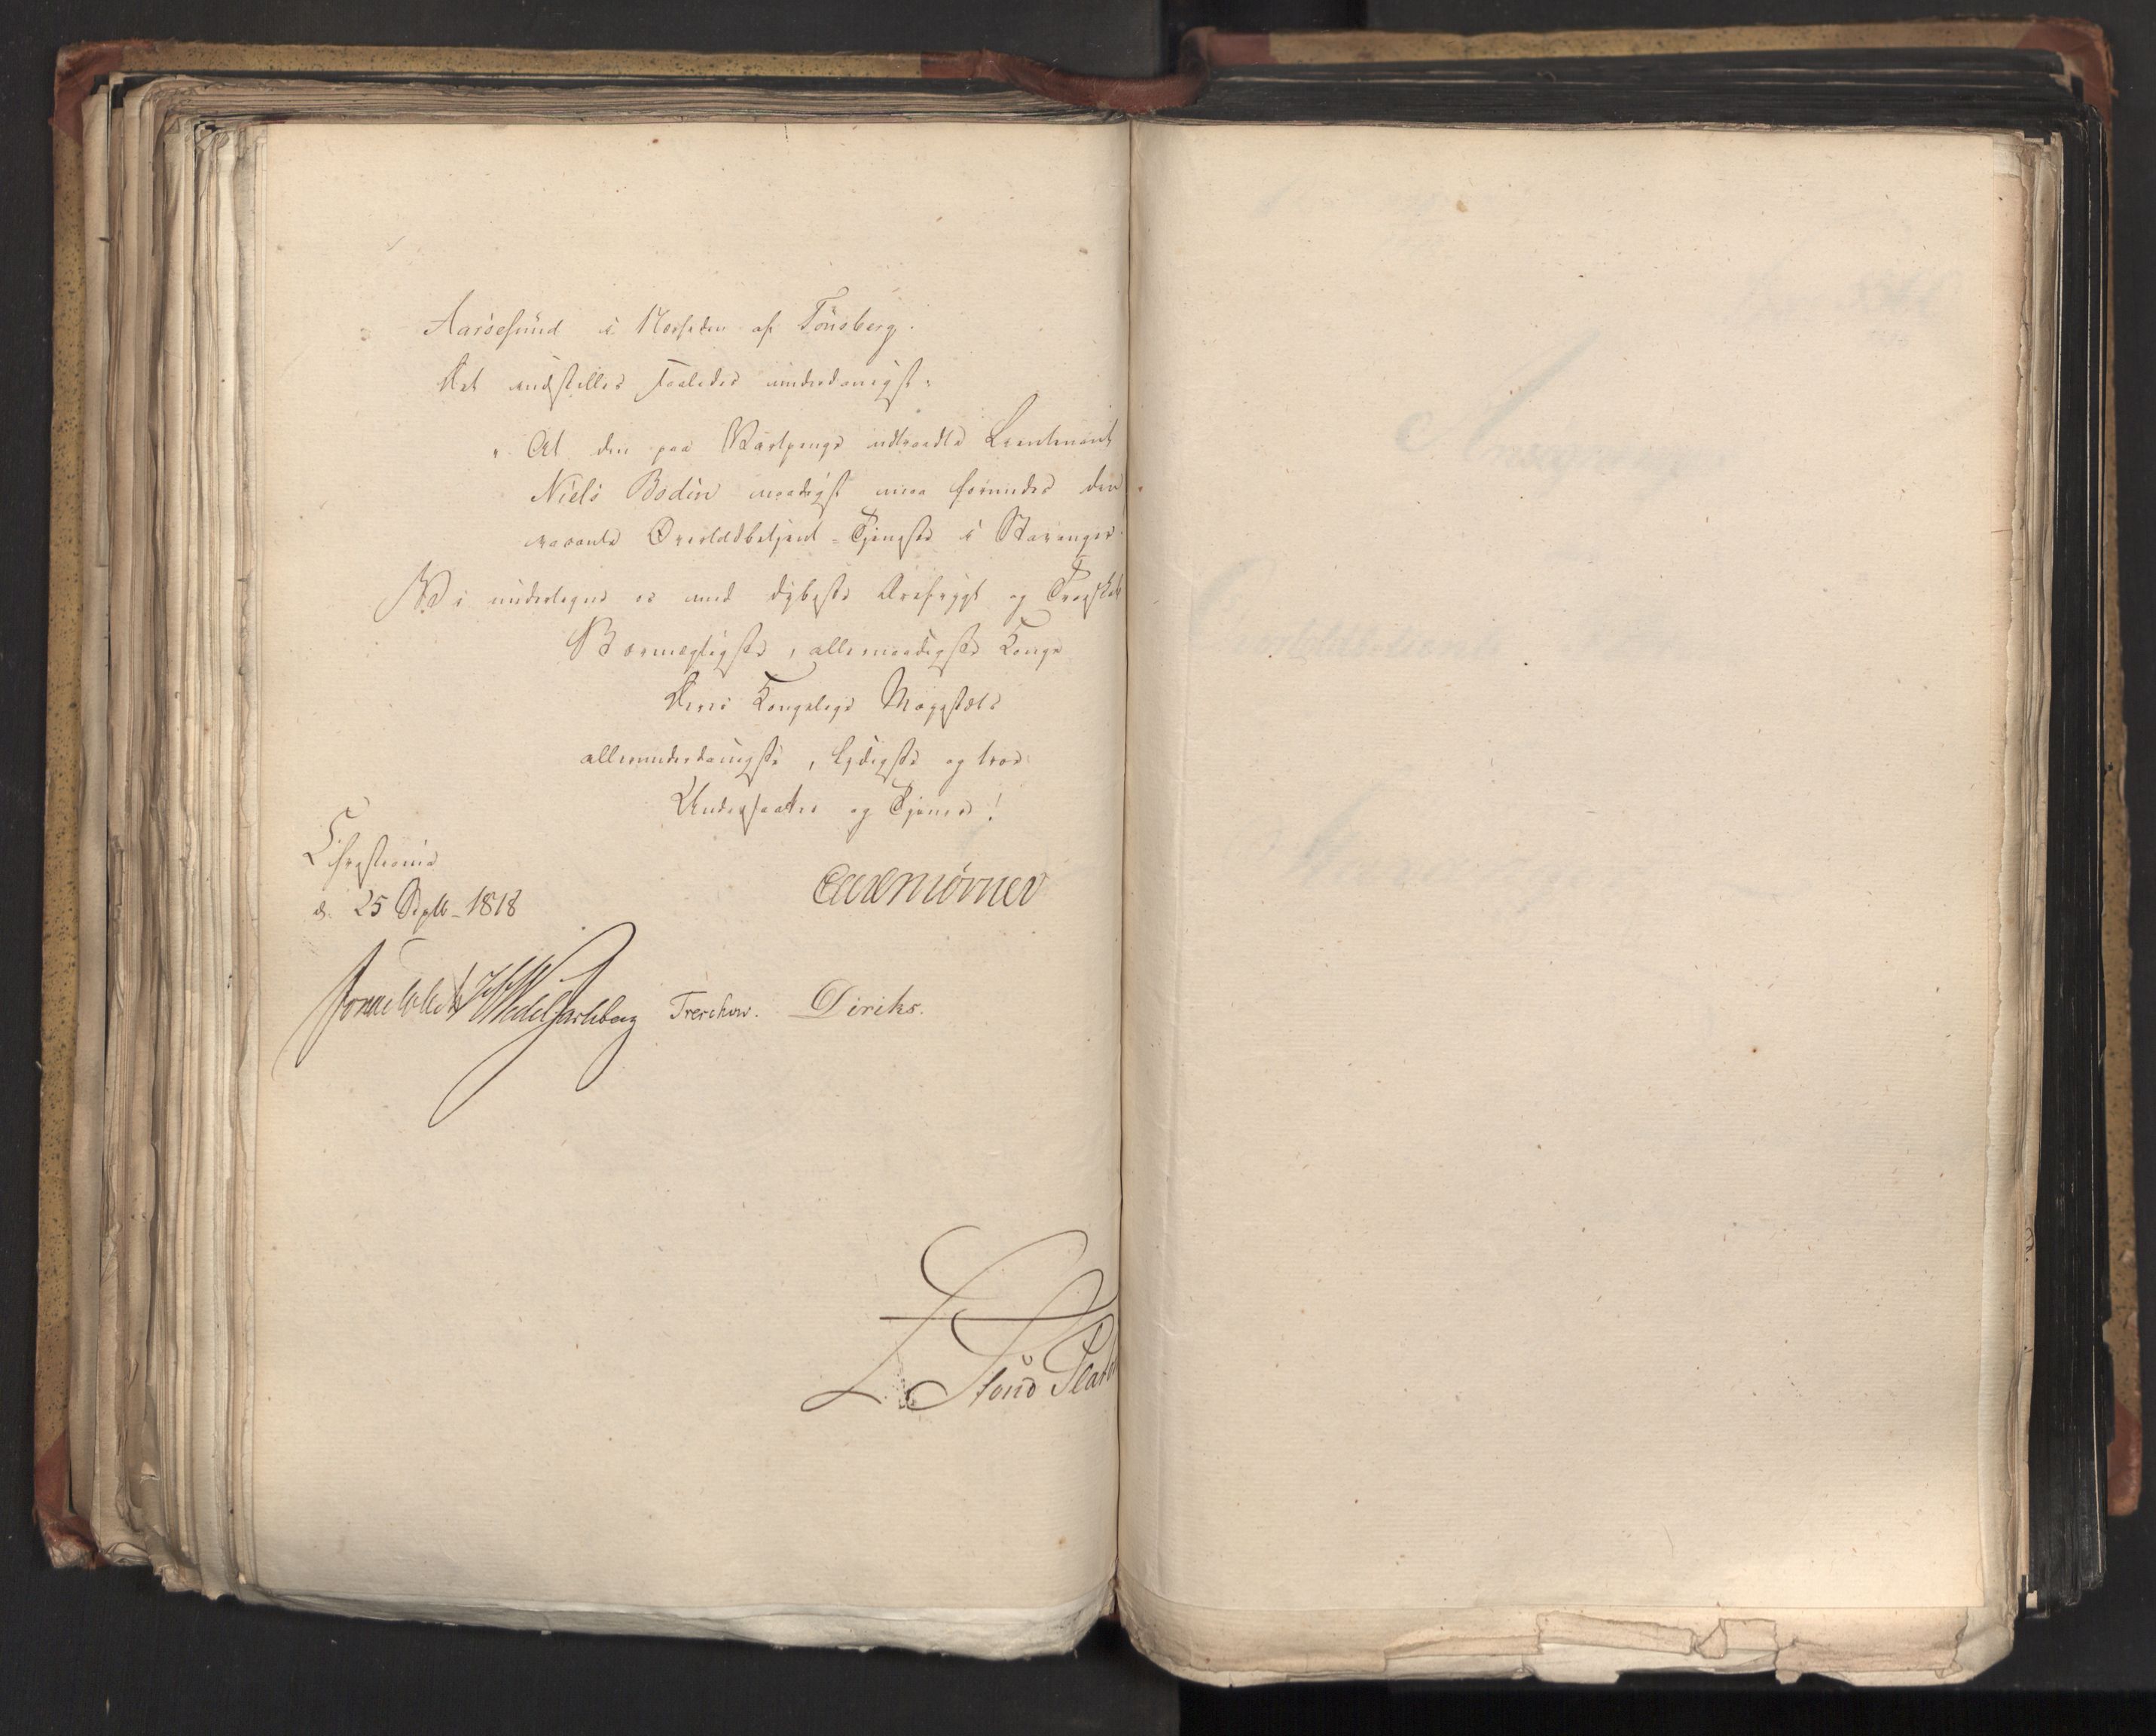 Aarøesund i Nærheden af Tönsberg.
Det indstilles saaledes underdanigst:
" At den paa Vartpenge udtraadte Lieutenant
Niels Bodin naadigst maa forundes den
vacante Overtoldbetjent-Tjeneste i Stavanger.
Vi undertegne os med dybeste Ærefrygt og Troeskab
Stormægtigste, allernaadigste Konge
Deres Kongelige Majestæts
allerunderdanigste, lydigste og troe
Undersaatter og Tjenere!
Christiania
d. 25 Septb. 1818
Carl Mörner
Jonas Collett JHWedel Jarlsberg Treschow. Diriks.
L. Stoud Plat